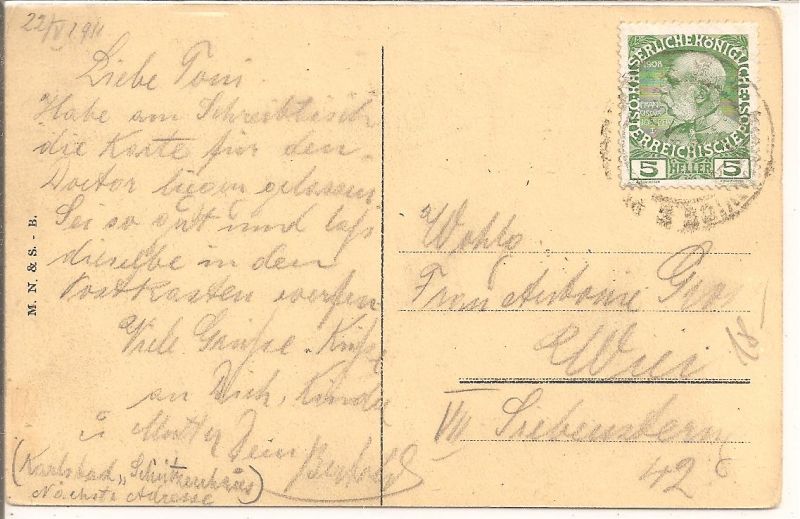 22/V 1911
Liebe Toni
Habe am Schreibtisch
die Karte für den
Doctor liegen gelassen
Sei so gut und laß
dieselbe in den
Postkasten werfen
Viele Grüße Küsse
an Dich, Kinder
u Mutter Dein Berthold
(Karlsbad „Schützenhaus
Nächste Adresse)
M. N. & S. - B.
KAISERLICHE KÖNIGLICHE
ÖSTERREICHISCHE
1908
5 HELLER 5
Wohlg.
Frau Antonie
Wien
18
VII Siebensterng
42